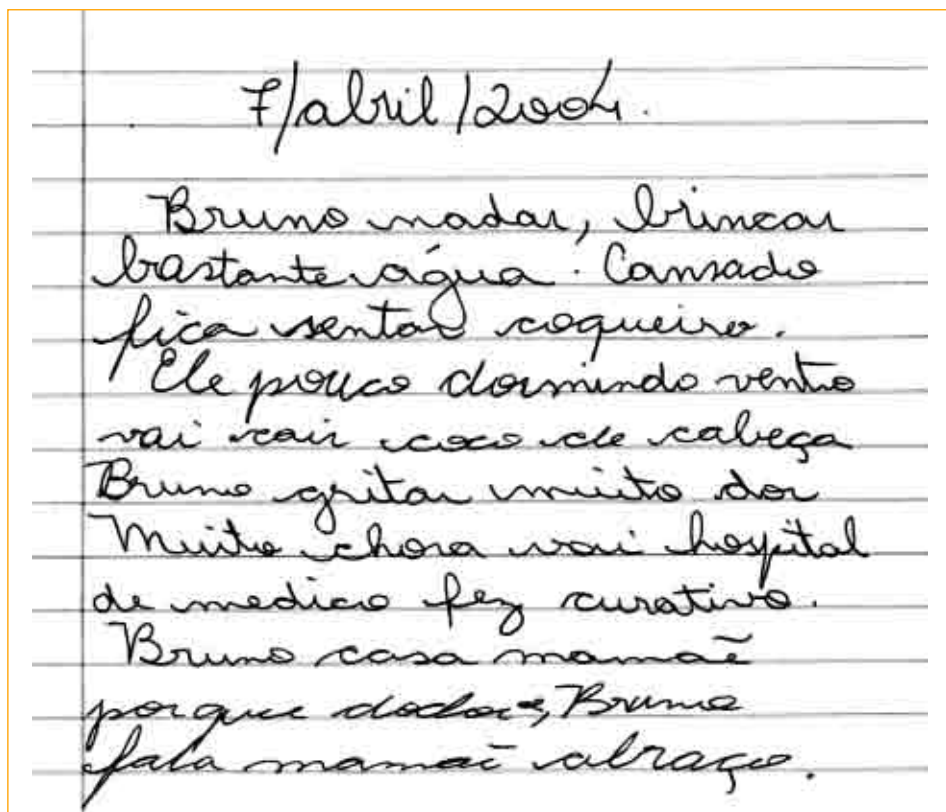 7/abril/2004.
Bruno nadar, brincar
bastante água. Cansado
fica sentar coqueiro.
Ele pouco dormindo vento
vai cair coco de cabeça
Bruno gritar muito dor
Muito chora vai hospital
de medico fez curativo.
Bruno casa mamãe
porque Bruno
fala mamãe abraço.